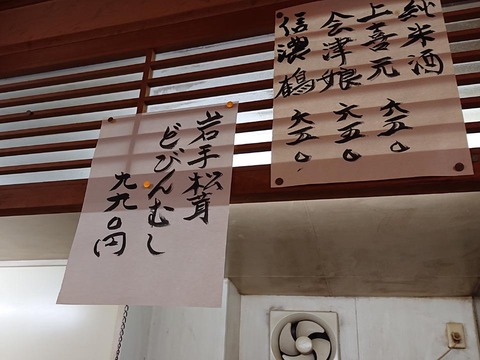 純米酒
上喜元 六五〇
会津娘 六五〇
信濃鶴 六五〇
岩手松茸
どびんむし
九九〇円